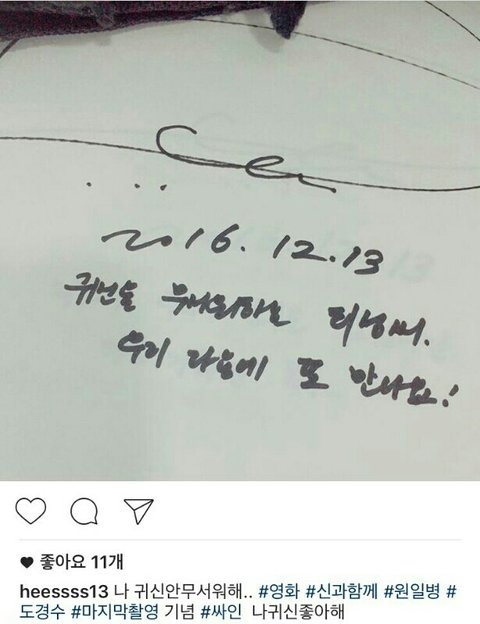 2016. 12. 13
귀신을 무서워하는 희닝씨.
우리 다음에 또 만나요!
좋아요 11개
heessss13 나 귀신안무서워해.. #영화 #신과함께 #원일병 #
도경수 #마지막촬영 기념 #싸인 나귀신좋아해